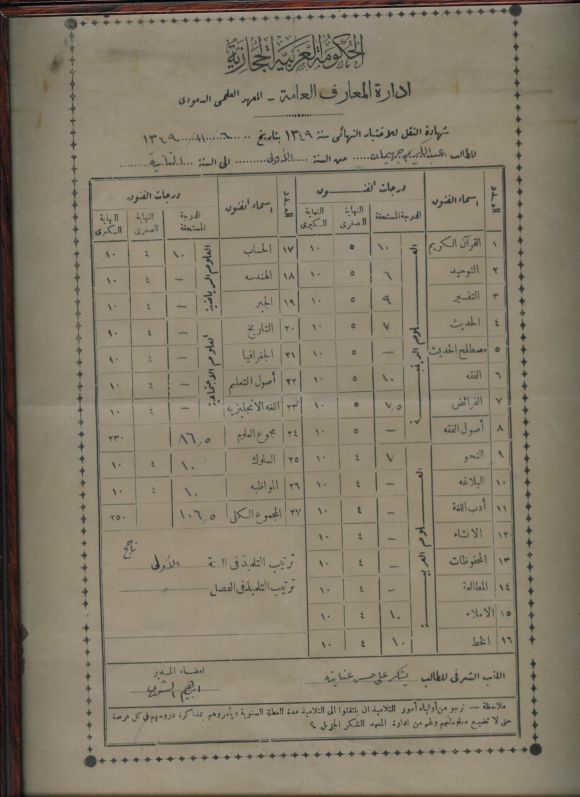 الحكومة العربية الحجازية
ادارة المعارف العامة - المعهد العلمي السعودى
شهادة النقل للاختبار النهائى سنة ١٣٤٩ بتاريخ ٦ ١١ ١٣٤٩
للطالب عبد الكريم جهيمان من السنة الأولى الى السنة الثانية
عدد
اسماء الفنون
درجات الفنون
الدرجة المستحقة
النهاية الصغرى
النهاية الكبرى
العلوم الدينية
١ القرآن الكريم ١٠ ٥ ١٠
٢ التوحيد ٦ ٥ ١٠
٣ التفسير ٩ ٥ ١٠
٤ الحديث ٧ ٥ ١٠
٥ مصطلح الحديث — ٥ ١٠
٦ الفقه ١٠ ٥ ١٠
٧ الفرائض ٧,٥ ٥ ١٠
٨ أصول الفقه — ٥ ١٠
العلوم العربية
٩ النحو ٧ ٤ ١٠
١٠ البلاغه — ٤ ١٠
١١ أدب اللغة — ٤ ١٠
١٢ الانشاء — ٤ ١٠
١٣ المحفوظات — ٤ ١٠
١٤ المطالعة — ٤ ١٠
١٥ الاملاء ١٠ ٤ ١٠
١٦ الخط ١٠ ٤ ١٠
عدد
اسماء الفنون
درجات الفنون
الدرجة المستحقة
النهاية الصغرى
النهاية الكبرى
العلوم الرياضية
١٧ الحساب ١٠ ٤ ١٠
١٨ الهندسه — ٤ ١٠
١٩ الجبر — ٤ ١٠
العلوم الاجتماعية
٢٠ التاريخ — ٤ ١٠
٢١ الجغرافيا — ٤ ١٠
٢٢ أصول التعليم — ٤ ١٠
٢٣ اللغه الانجليزيه — ٤ ١٠
٢٤ مجموع العلوم ٨٦,٥ ٢٣٠
٢٥ السلوك ١٠ ٤ ١٠
٢٦ المواظبه ١٠ ٤ ١٠
٢٧ المجموع الكلى ١٠٦,٥ ٢٥٠
ناجح
ترتيب التلميذ فى السنة الأولى
ترتيب التلميذ فى الفصل
اللقب الشرفى للطالب يشكر على حسن عنايته
امضاء المدير
ابراهيم الشورى
ملاحظة — نرجو من أولياء أمور التلاميذ ان يلتفتوا الى التلاميذ مدة العطلة السنوية ويأمروهم بمذاكرة دروسهم فى كل فرصة
حتى لا تضيع معلوماتهم ولهم من ادارة المعهد الشكر الجزيل ؟